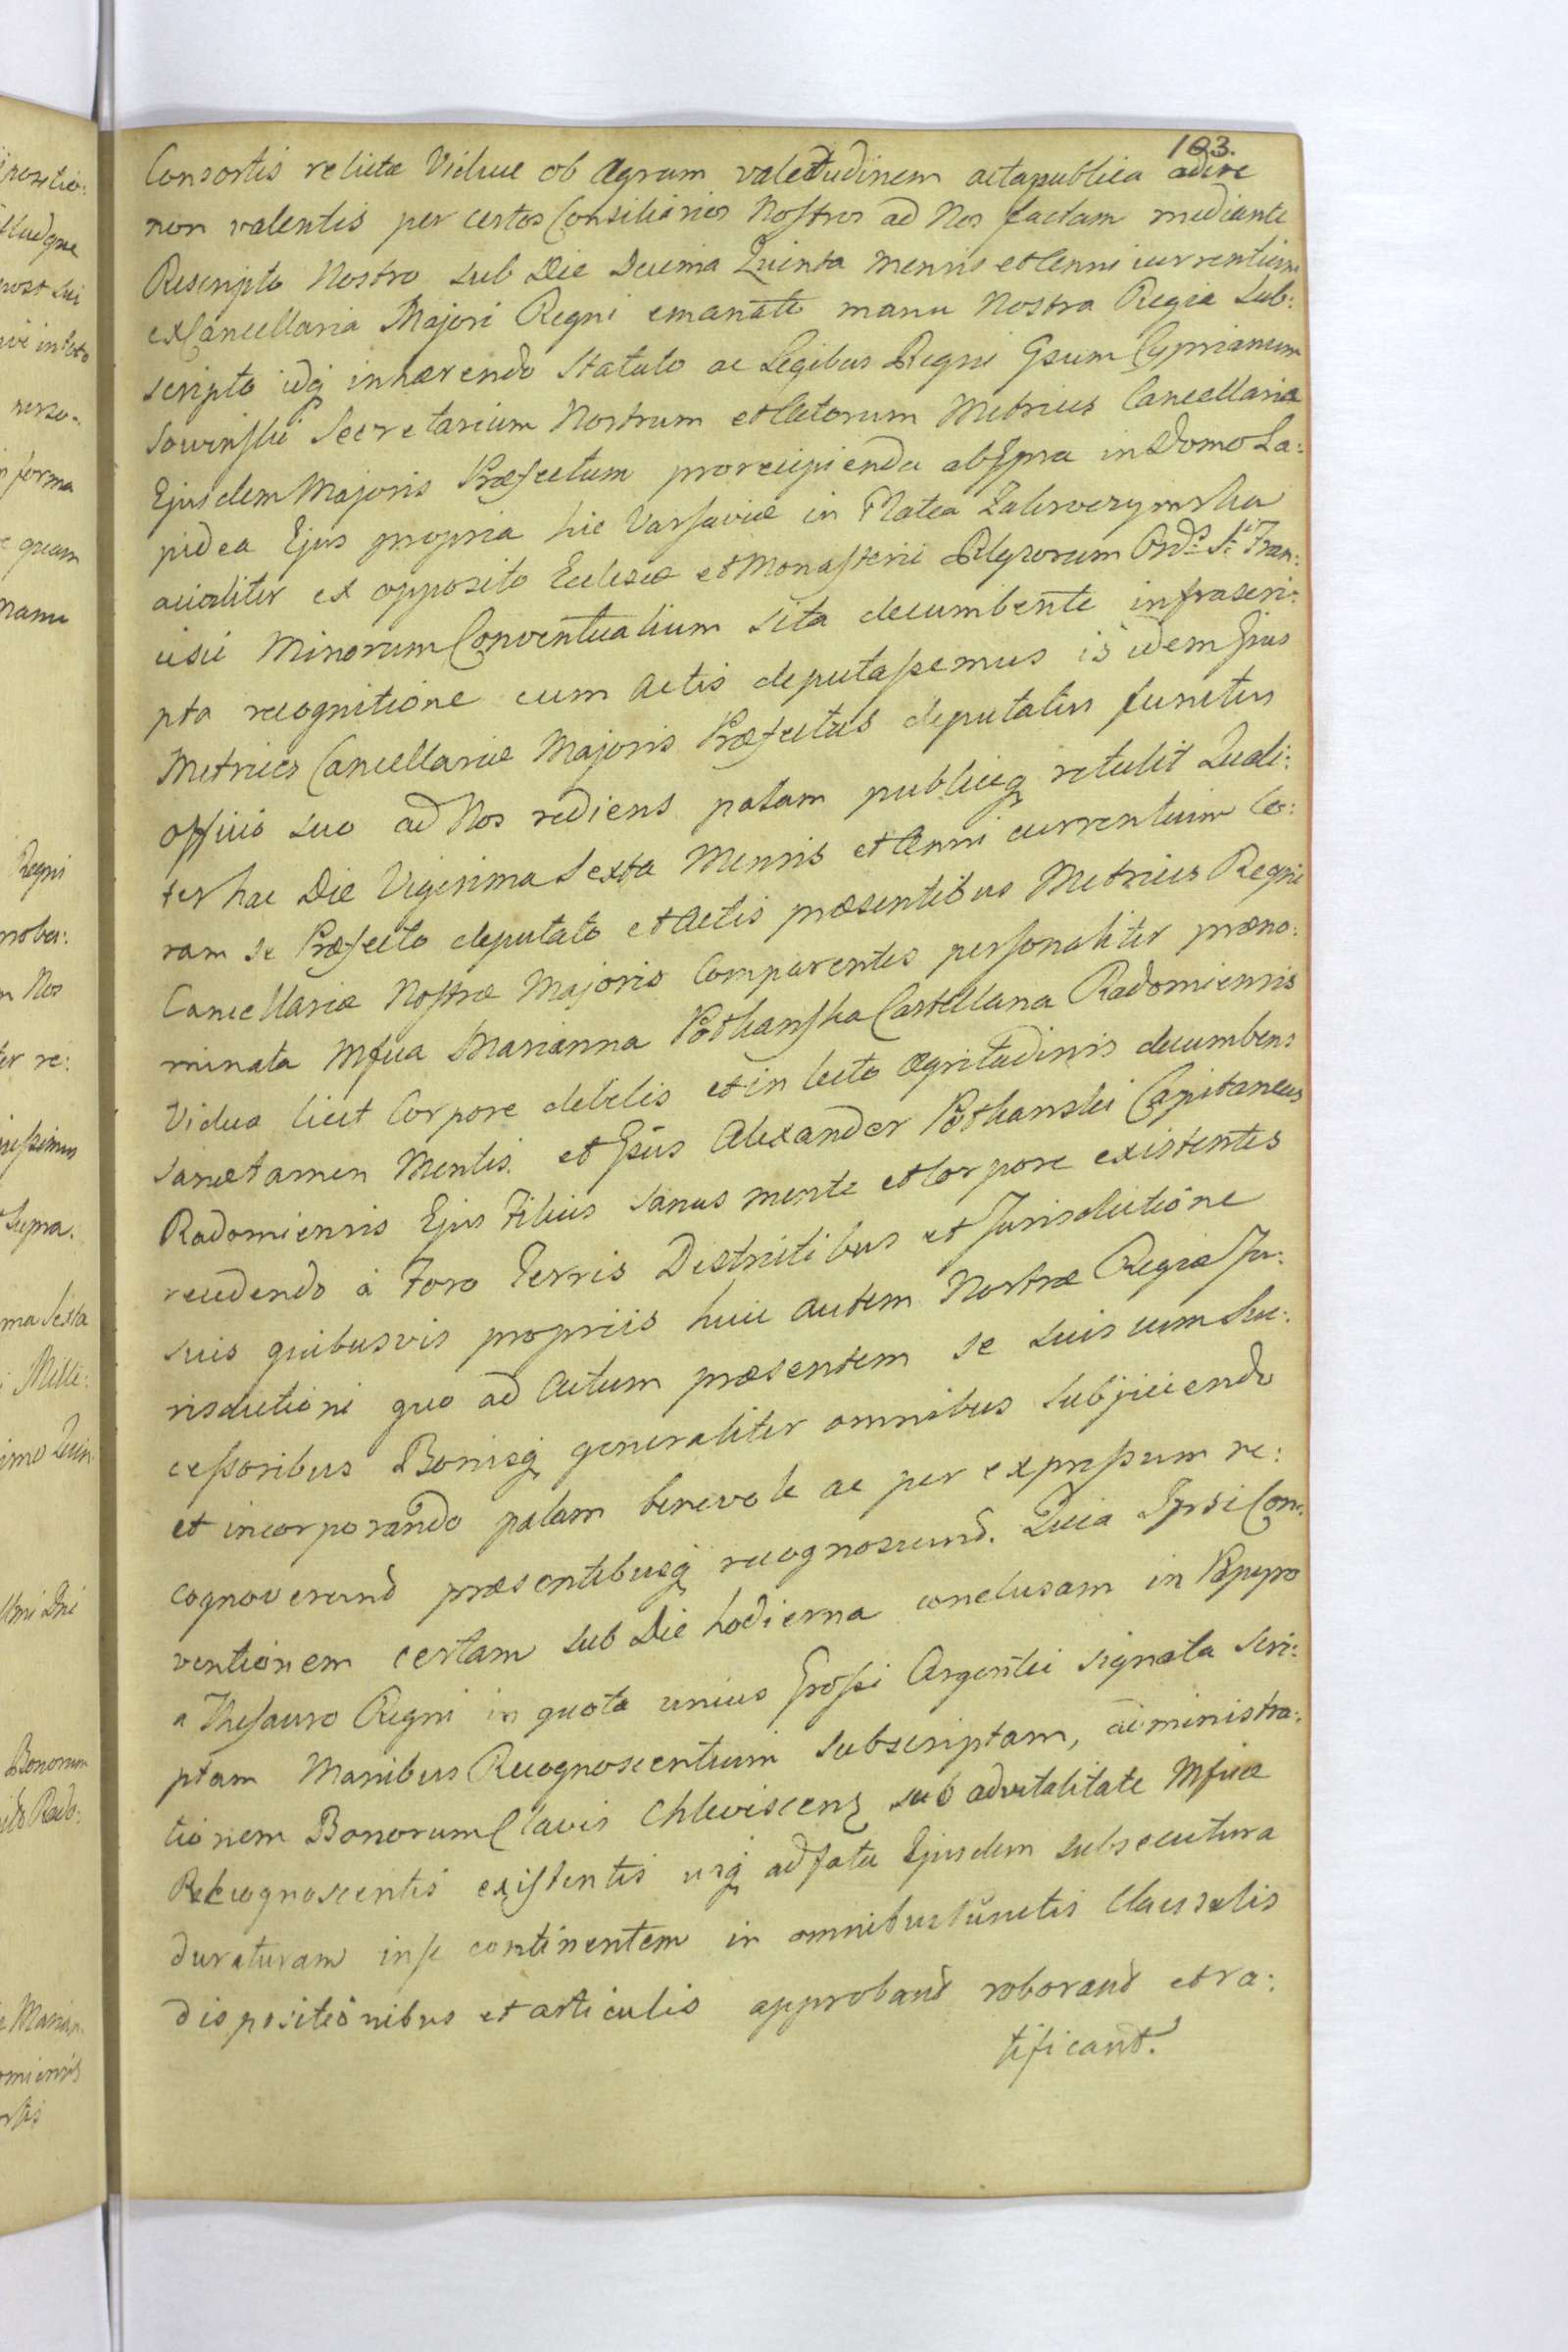 103.
Consortis relictæ Viduæ ob Ægram valetudinem acta publica adire
non valentis per certos Consiliarios Nostros ad Nos factam mediante
Rescripto Nostro sub Die Decima Quinta mensis et Anni currentium
ex Cancellaria Majori Regni emanato manu Nostra Regia sub:
scripto idq inhærendo Statuto ac Legibus Regni Gsum Cyprianum
Sowinski Secretarium Nostrum et Actorum Metrices Cancellariæ
Ejusdem Majoris Præfectum pro recipienda ab Ipsa in Domo La:
pidea Ejus propria hic Varsaviæ in Platea Zakroczymska
acialiter ex opposito Ecclesiæ et Monasterii Religiosorum Ord: S: Fran:
cisci Minorum Conventualium sita decumbente infrascri:
pta recognitione cum Actis deputassemus is idem Gsus
Metrices Cancellariæ Majoris Præfectus deputatus functus
officio suo ad Nos rediens palam publiceq retulit Quali:
ter hac Die Vigesima Sexta Mensis et Anni currentium Co:
ram se Præfecto deputato et Actis præsentibus Metrices Regni
Cancellariæ Nostræ Majoris Comparentes personaliter præno:
minata Mfica Marianna Potkanska Castellana Radomiensis
Vidua licet Corpore debilis et in lecto ægritudinis decumbens
sana tamen Mentis. et Gsus Alexander Potkanski Capitaneus
Radomiensis Ejus Filius sanus mente et Corpore existentes
recedendo à Foro Terris Districtibus et Jurisdictione
suis quibusvis propriis huic autem Nostræ Regiæ Ju:
risdictioni quo ad Actum præsentem se suis cum Suc:
cessoribus Bonisq generaliter omnibus subjiciendo
et incorporando palam benevole ac per expressum re:
cognoverund præsentibusq recognoscund. Quia Ipsi Con:
ventionem certam sub Die hodierna conclusam in Papyro
a Thesauro Regni in quota unius Grossi Argentei signata scri:
ptam Manibus Recognoscentium subscriptam, administra:
tionem Bonorum Clavis Chleviscens sub advitalitate Mficæ
Recognoscentis existentis usq ad fata Ejusdem subsecutura
duraturam in se continentem in omnibus punctis Clausulis
dispositionibus et articulis approband roborand et ra:
tificand.